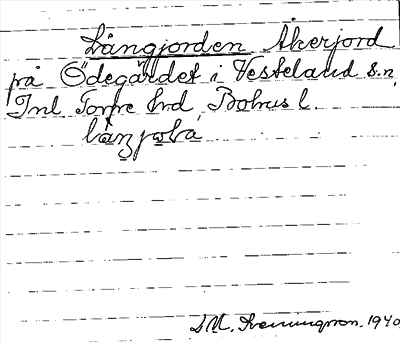 Långjorden Åkerjord
på Ödegärdet i Vesteland s.n,
Inl. Torpe hrd, Bohus l.
J M. Svenningson. 1940